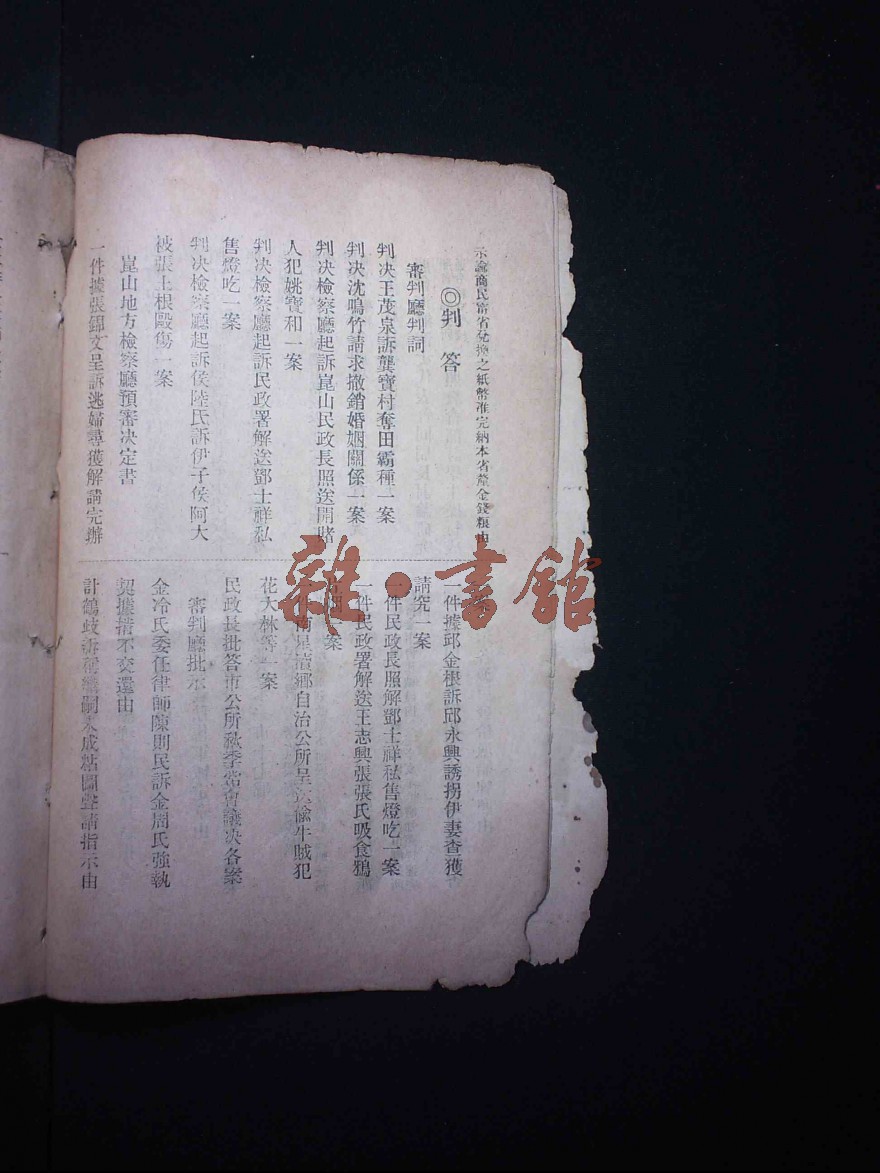 示諭商民寗省兌換之紙幣准完納本省釐金錢糧由
◎判 答
審判廳判詞
判决王茂泉訴龔寶村奪田霸種一案
判决沈鳴竹請求撤銷婚姻關係一案
判决檢察廳起訴崑山民政長照送開賭
人犯姚寶和一案
判决檢察廳起訴民政署解送鄧士祥私
售燈吃一案
判决檢察廳起訴侯陸氏訴伊子侯阿大
被張土根毆傷一案
崑山地方檢察廳預審决定書
一件據張錦文呈訴逃婦尋獲解請完辦
一件據邱金根訴邱永興誘拐伊妻查獲
請究一案
一件民政長照解鄧士祥私售燈吃一案
一件民政署解送王志興張張氏吸食鴉
片烟一案
一件南星瀆鄉自治公所呈送偷牛賊犯
花大林等一案
民政長批答市公所秋季常會議决各案
審判廳批示
金冷氏委任律師陳則民訴金周氏強執
契據揹不交還由
計鶴歧訴稱繼嗣 成粘圖聲請指示由
雜·書館